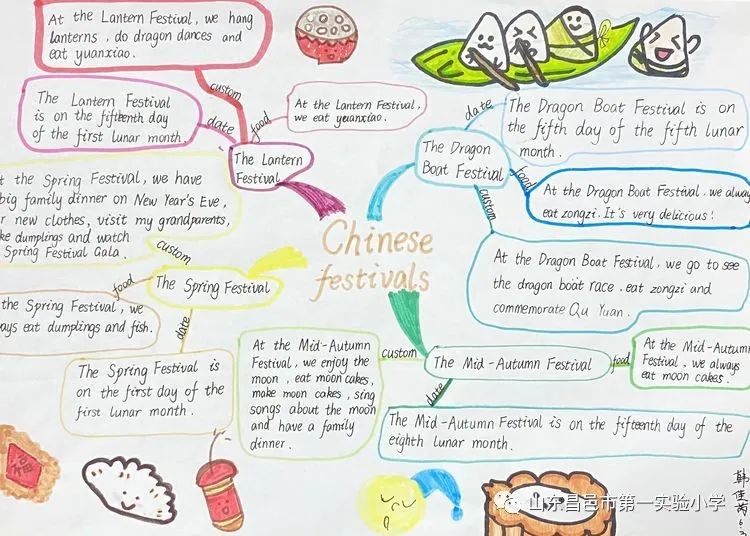 Chinese
festivals
At the Lantern Festival, we hang
lanterns, do dragon dances and
eat yuanxiao.
custom
The Lantern Festival
is on the fifteenth day
of the first lunar month.
date
At the Lantern Festival,
we eat yuanxiao.
food
The Lantern
Festival
t the Spring Festival, we have
big family dinner on New Year's Eve,
r new clothes, visit my grandparents,
ke dumplings and watch
Spring Festival Gala.
custom
The Spring Festival
food
the Spring Festival, we
ays eat dumplings and fish.
date
The Spring Festival is
on the first day of the
first lunar month.
date
The Dragon Boat Festival is on
the fifth day of the fifth lunar
month.
The Dragon
Boat Festival
food
At the Dragon Boat Festival, we alway
eat zongzi. It's very delicious!
custom
At the Dragon Boat Festival, we go to see
the dragon boat race, eat zongzi and
commemorate Qu Yuan.
At the Mid-Autumn
Festival, we enjoy the
moon, eat moon cakes,
make moon cakes, sing
songs about the moon
and have a family
dinner.
custom
The Mid-Autumn Festival
food
At the Mid-Autumn
Festival, we always
eat moon cakes.
date
The Mid-Autumn Festival is on the fifteenth day of the
eighth lunar month.
福
山东昌邑市第一实验小学